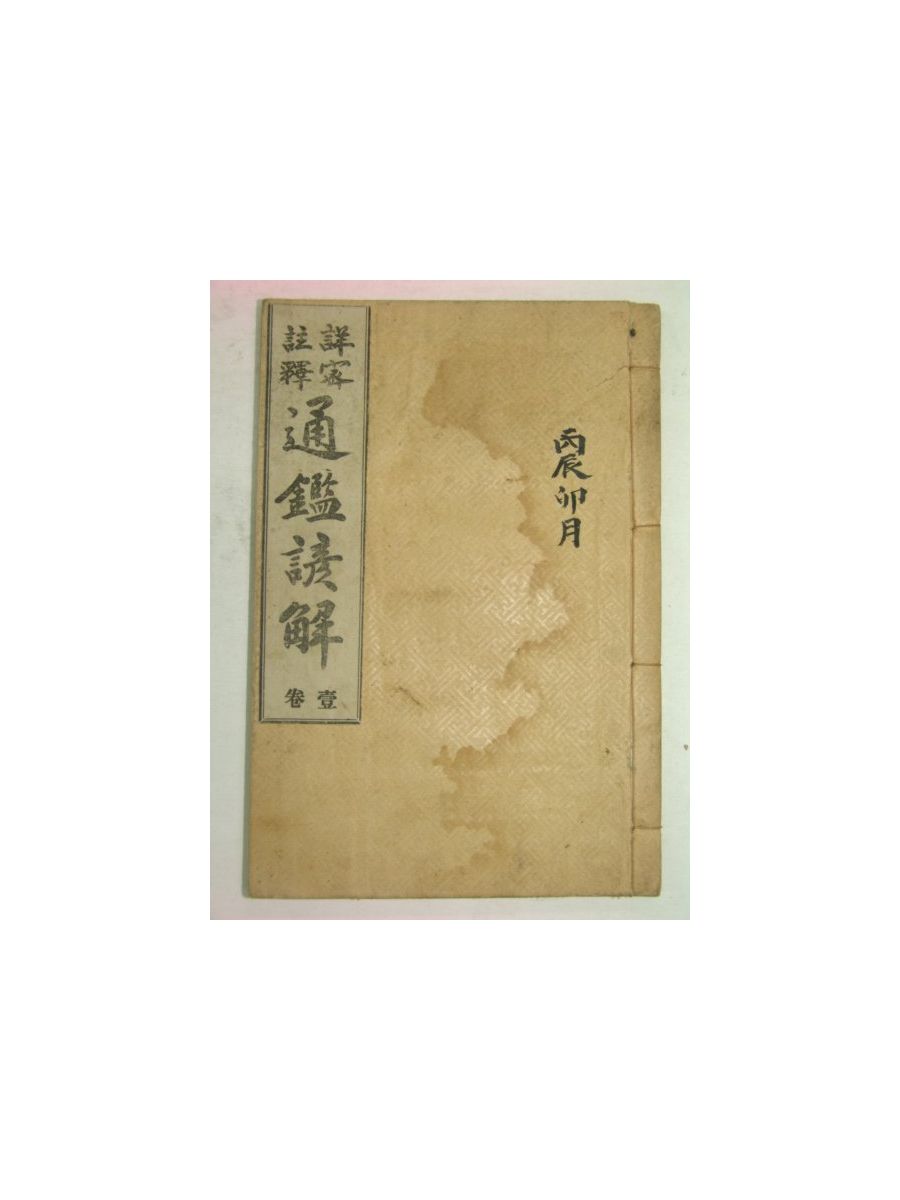 丙辰卯月
詳密
註釋
通鑑諺解
壹卷